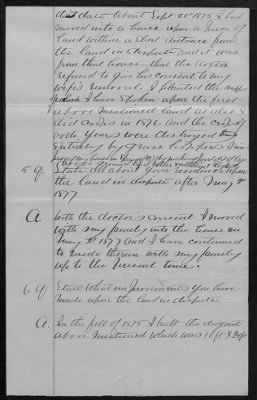 that date About Sept 20th 1875 I had
moved into a house upon a piece of
land within a short distance from
the land in dispute and it was
from that house that the doctor
refused to give his consent to my
wife's removal. I planted the crops
of which I have spoken upon the first
above mentioned land as also I
did crops in 1876 and the crops of
both years were destroyed
Entirely by grass hoppers
5 Q. State all about your residence upon
the land in dispute after May 2d
1877
A With the doctors consent I moved
with my family into the house on
May 2d 1877 and I have continued
to reside therein with my family
up to the present time.
6 Q State What improvements you have
made upon the land in dispute
A. In the fall of 1875 I built the dugout
above mentioned which was 11 ft X